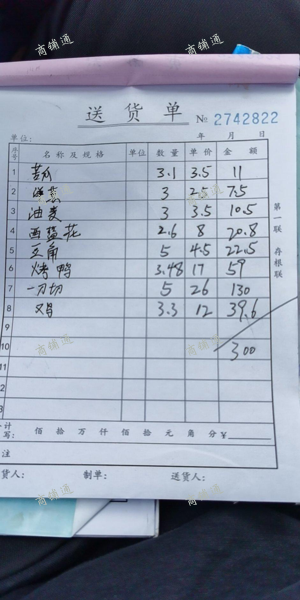 送货单 № 2742822
单位: 年 月 日
序号 名称及规格 单位 数量 单价 金额
1 苦瓜 3.1 3.5 11
2 3 2.5 7.5
3 油麦 3 3.5 10.5
4 西蓝花 2.6 8 20.8
5 豆角 5 4.5 22.5
6 烤鸭 3.48 17 59
7 一刀切 5 26 130
8 鸡 3.3 12 39.6
9
10 300
11
12
3
合计
大写: 佰 拾 万 仟 佰 拾 元 角 分 ¥
备注
货人: 制单: 送货人:
第一联 存根联
商铺通
商铺通
商铺通
商铺通
商铺通
商铺通
商铺通